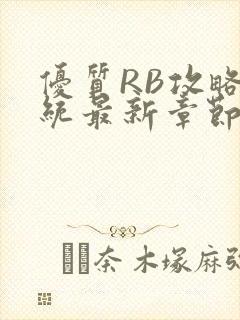 優質RB攻略
統最新章節
奈木塚麻弥